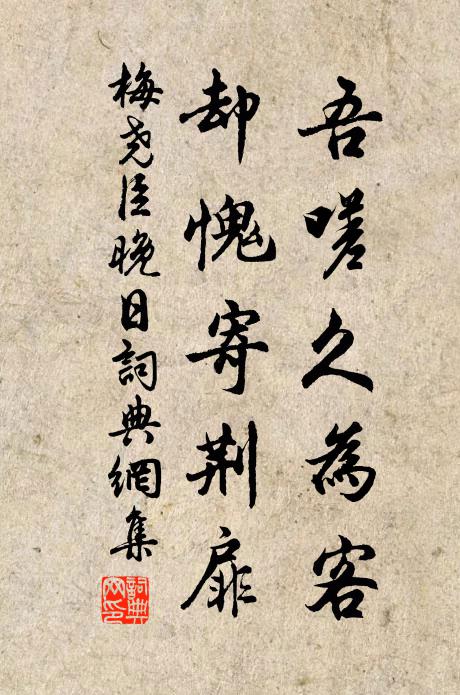 吾嗟久為客
却愧寄荆扉
梅尧臣晚日詞典網集
詞典網印